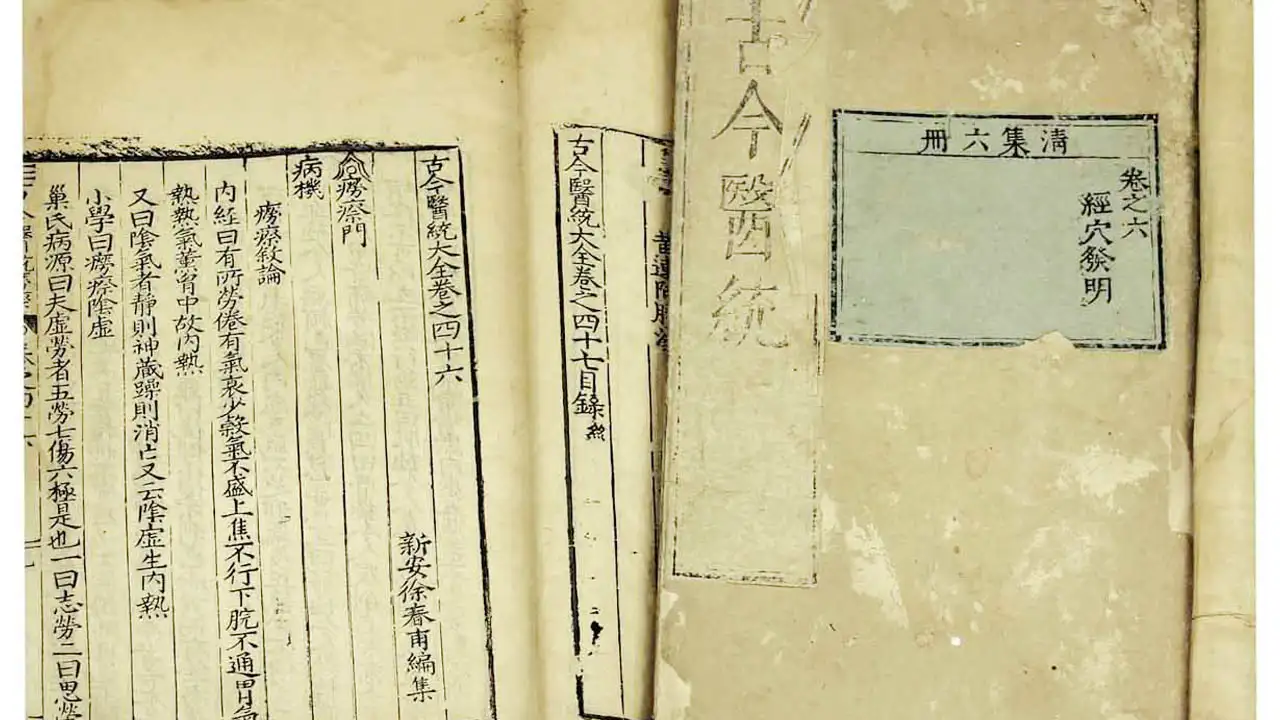 古今醫統
清集六冊
卷之六
經穴發明
古今醫統大全卷之四十七目錄終
古今醫統大全卷之四十六
新安徐春甫編集
癆瘵門
病機
癆瘵敘論
內經曰有所勞倦有氣衰少穀氣不盛上焦不行下脘不通胃氣
熱熱氣薰胷中故內熱
又曰陰氣者靜則神藏躁則消亡又云陰虛生內熱
小學曰癆瘵陰虛
巢氏病源曰夫虛勞者五勞七傷六極是也一曰志勞二曰思勞